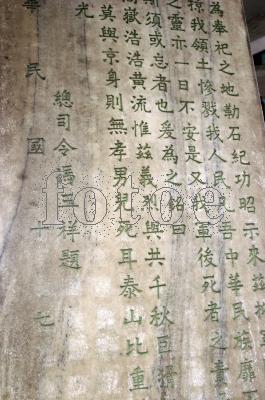 為奉祀之地勒石紀功昭示來茲將
掠我領土慘戮我人民凡吾中華民族靡
之靈亦一日不安是又我輩後死者之責
須或忘者也爰為之銘曰
嶽浩浩黃流惟茲義烈與共千秋巨猾
莫與京身則無孝男兒死耳泰山比重
光
總司令馮玉祥題
華民國十七
fotoe